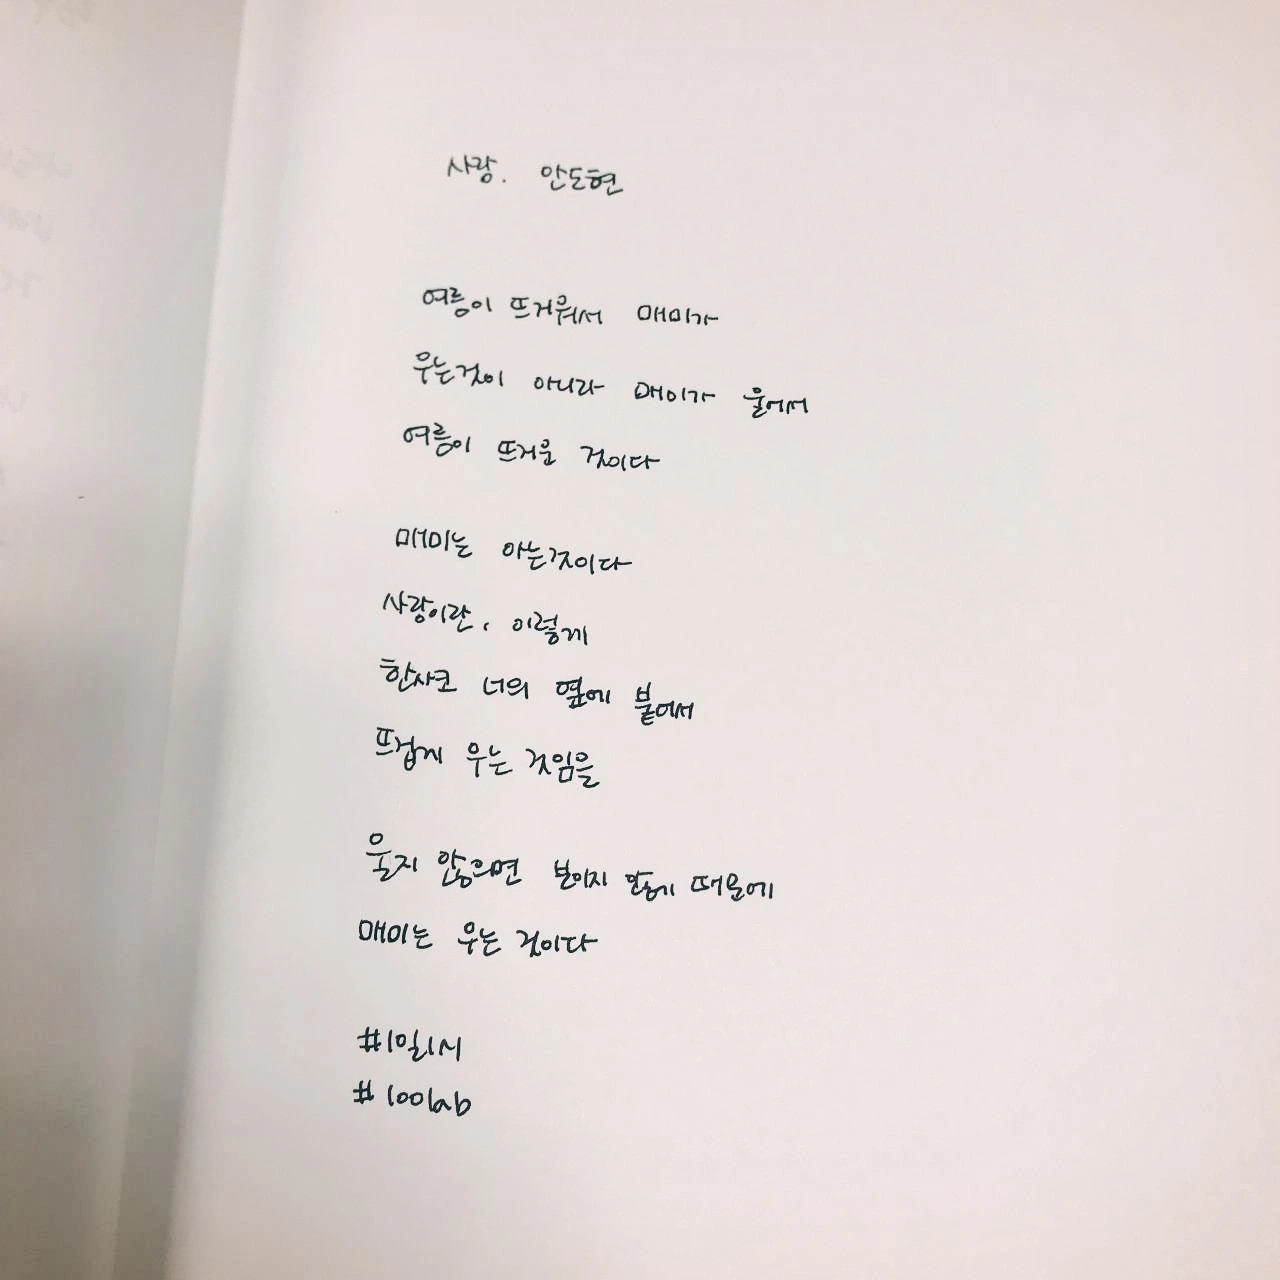 사랑. 안도현
여름이 뜨거워서 매미가
우는것이 아니라 매미가 울어서
여름이 뜨거운 것이다
매미는 아는것이다
사랑이란, 이렇게
한사코 너의 옆에 붙어서
뜨겁게 우는 것임을
울지 않으면 보이지 않기 때문에
매미는 우는 것이다
#1일1시
#100lab